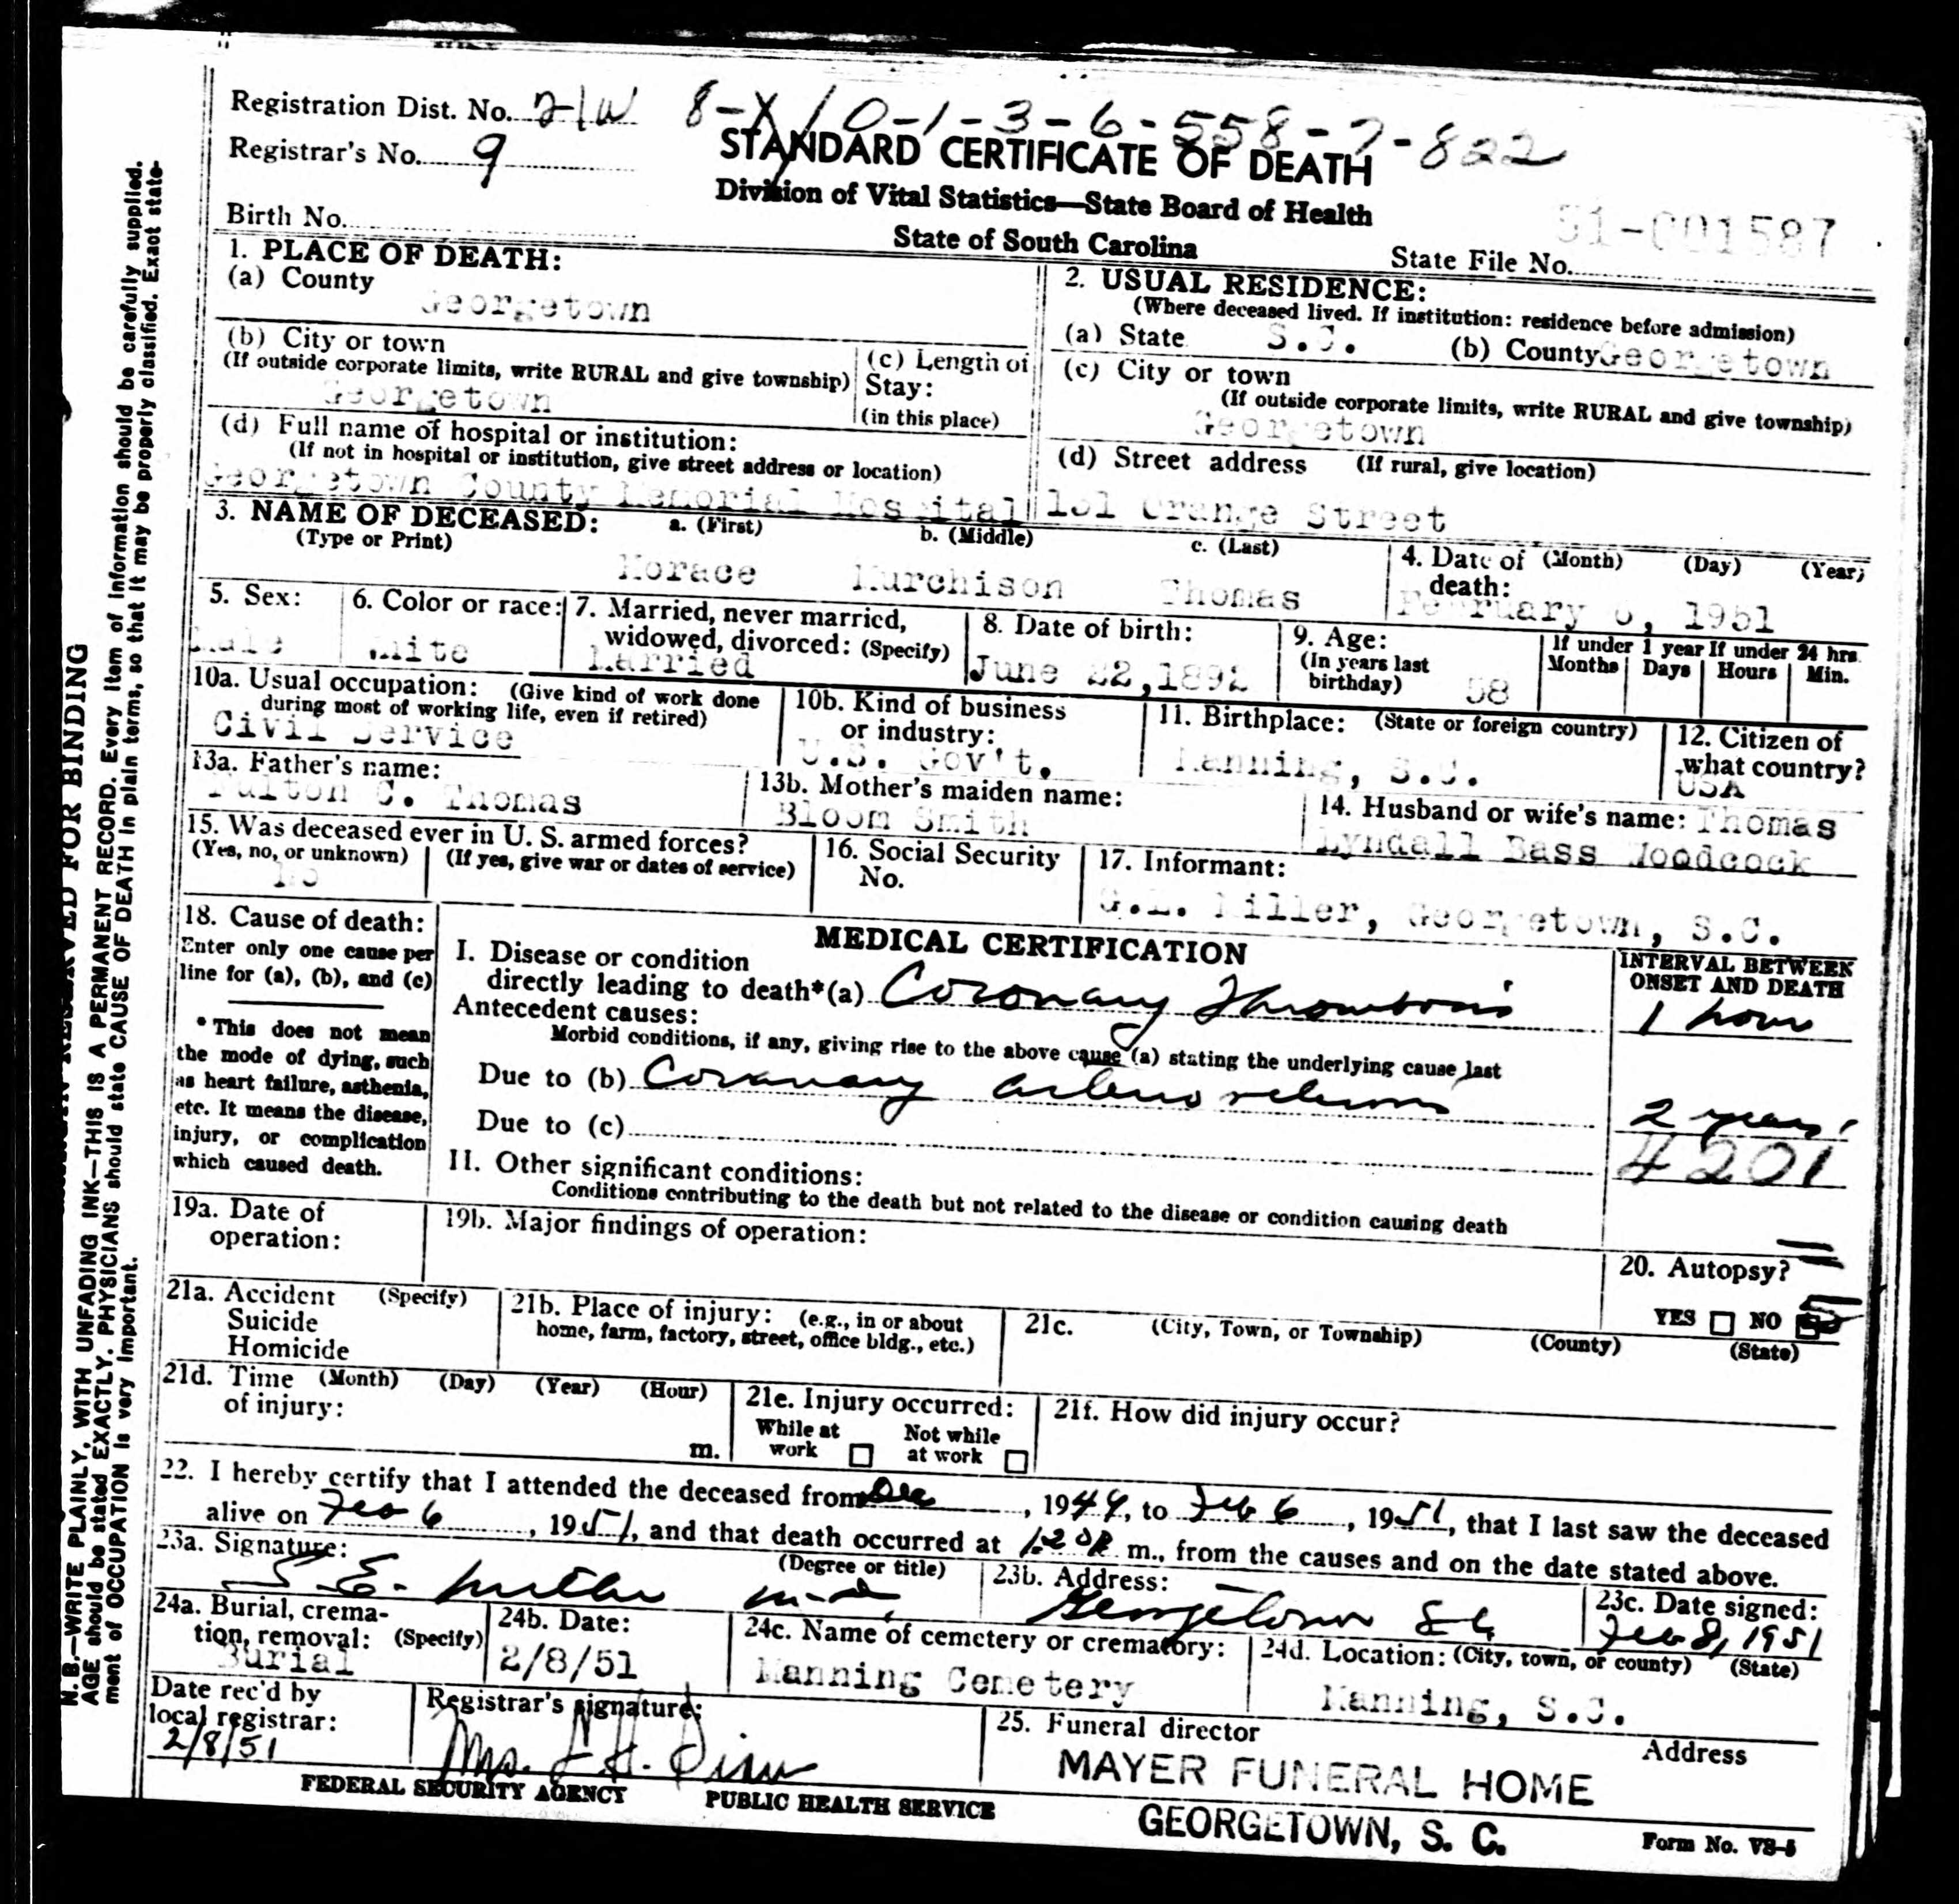 Registration Dist. No. 21W 8-X10-1-3-6-558-7-822
Registrar's No. 9
STANDARD CERTIFICATE OF DEATH
Division of Vital Statistics—State Board of Health
State of South Carolina
Birth No.
State File No. 51-001587
1. PLACE OF DEATH:
(a) County
Georgetown
(b) City or town
(If outside corporate limits, write RURAL and give township)
Georgetown
(c) Length of
Stay:
(in this place)
(d) Full name of hospital or institution:
(If not in hospital or institution, give street address or location)
Georgetown County Memorial Hospital
2. USUAL RESIDENCE:
(Where deceased lived. If institution: residence before admission)
(a) State S.C. (b) County Georgetown
(c) City or town
(If outside corporate limits, write RURAL and give township)
Georgetown
(d) Street address (If rural, give location)
Orange Street
3. NAME OF DECEASED: a. (First) b. (Middle) c. (Last)
(Type or Print)
Horace Murchison Thomas
4. Date of (Month) (Day) (Year)
death:
February 6, 1951
5. Sex:
Male
6. Color or race:
White
7. Married, never married,
widowed, divorced: (Specify)
Married
8. Date of birth:
June 22, 1892
9. Age:
(In years last
birthday) 58
If under 1 year If under 24 hrs.
Months Days Hours Min.
10a. Usual occupation: (Give kind of work done
during most of working life, even if retired)
Civil Service
10b. Kind of business
or industry:
U.S. Gov't.
11. Birthplace: (State or foreign country)
Manning, S.C.
12. Citizen of
what country?
USA
13a. Father's name:
Fulton C. Thomas
13b. Mother's maiden name:
Bloom Smith
14. Husband or wife's name: Thomas
Lyndall Bass Woodcock
15. Was deceased ever in U. S. armed forces?
(Yes, no, or unknown) (If yes, give war or dates of service)
No
16. Social Security
No.
17. Informant:
Miller, Georgetown, S.C.
18. Cause of death:
Enter only one cause per
line for (a), (b), and (c)
* This does not mean
the mode of dying, such
as heart failure, asthenia,
etc. It means the disease,
injury, or complication
which caused death.
MEDICAL CERTIFICATION
I. Disease or condition
directly leading to death*(a) Coronary Thrombosis
Antecedent causes:
Morbid conditions, if any, giving rise to the above cause (a) stating the underlying cause last
Due to (b) Coronary arteriosclerosis
Due to (c)
II. Other significant conditions:
Conditions contributing to the death but not related to the disease or condition causing death
INTERVAL BETWEEN
ONSET AND DEATH
1 hour
2 years
4201
19a. Date of
operation:
19b. Major findings of operation:
20. Autopsy?
YES NO
21a. Accident (Specify)
Suicide
Homicide
21b. Place of injury: (e.g., in or about
home, farm, factory, street, office bldg., etc.)
21c. (City, Town, or Township) (County) (State)
21d. Time (Month) (Day) (Year) (Hour)
of injury: m.
21e. Injury occurred:
While at Not while
work at work
21f. How did injury occur?
22. I hereby certify that I attended the deceased from Dec, 1949, to Feb 6, 1951, that I last saw the deceased
alive on Feb 6, 1951, and that death occurred at 1:20P m., from the causes and on the date stated above.
23a. Signature: (Degree or title)
S. E. Miller M.D.
23b. Address:
Georgetown S.C.
23c. Date signed:
Feb 8, 1951
24a. Burial, crema-
tion, removal: (Specify)
Burial
24b. Date:
2/8/51
24c. Name of cemetery or crematory:
Manning Cemetery
24d. Location: (City, town, or county) (State)
Manning, S.C.
Date rec'd by
local registrar:
2/8/51
Registrar's signature:
Mrs.
25. Funeral director Address
MAYER FUNERAL HOME
GEORGETOWN, S. C.
FEDERAL SECURITY AGENCY PUBLIC HEALTH SERVICE
Form No. VS-5
RESERVED FOR BINDING
N.B.—WRITE PLAINLY, WITH UNFADING INK—THIS IS A PERMANENT RECORD. Every item of information should be carefully supplied.
AGE should be stated EXACTLY. PHYSICIANS should state CAUSE OF DEATH in plain terms, so that it may be properly classified. Exact state-
ment of OCCUPATION is very important.